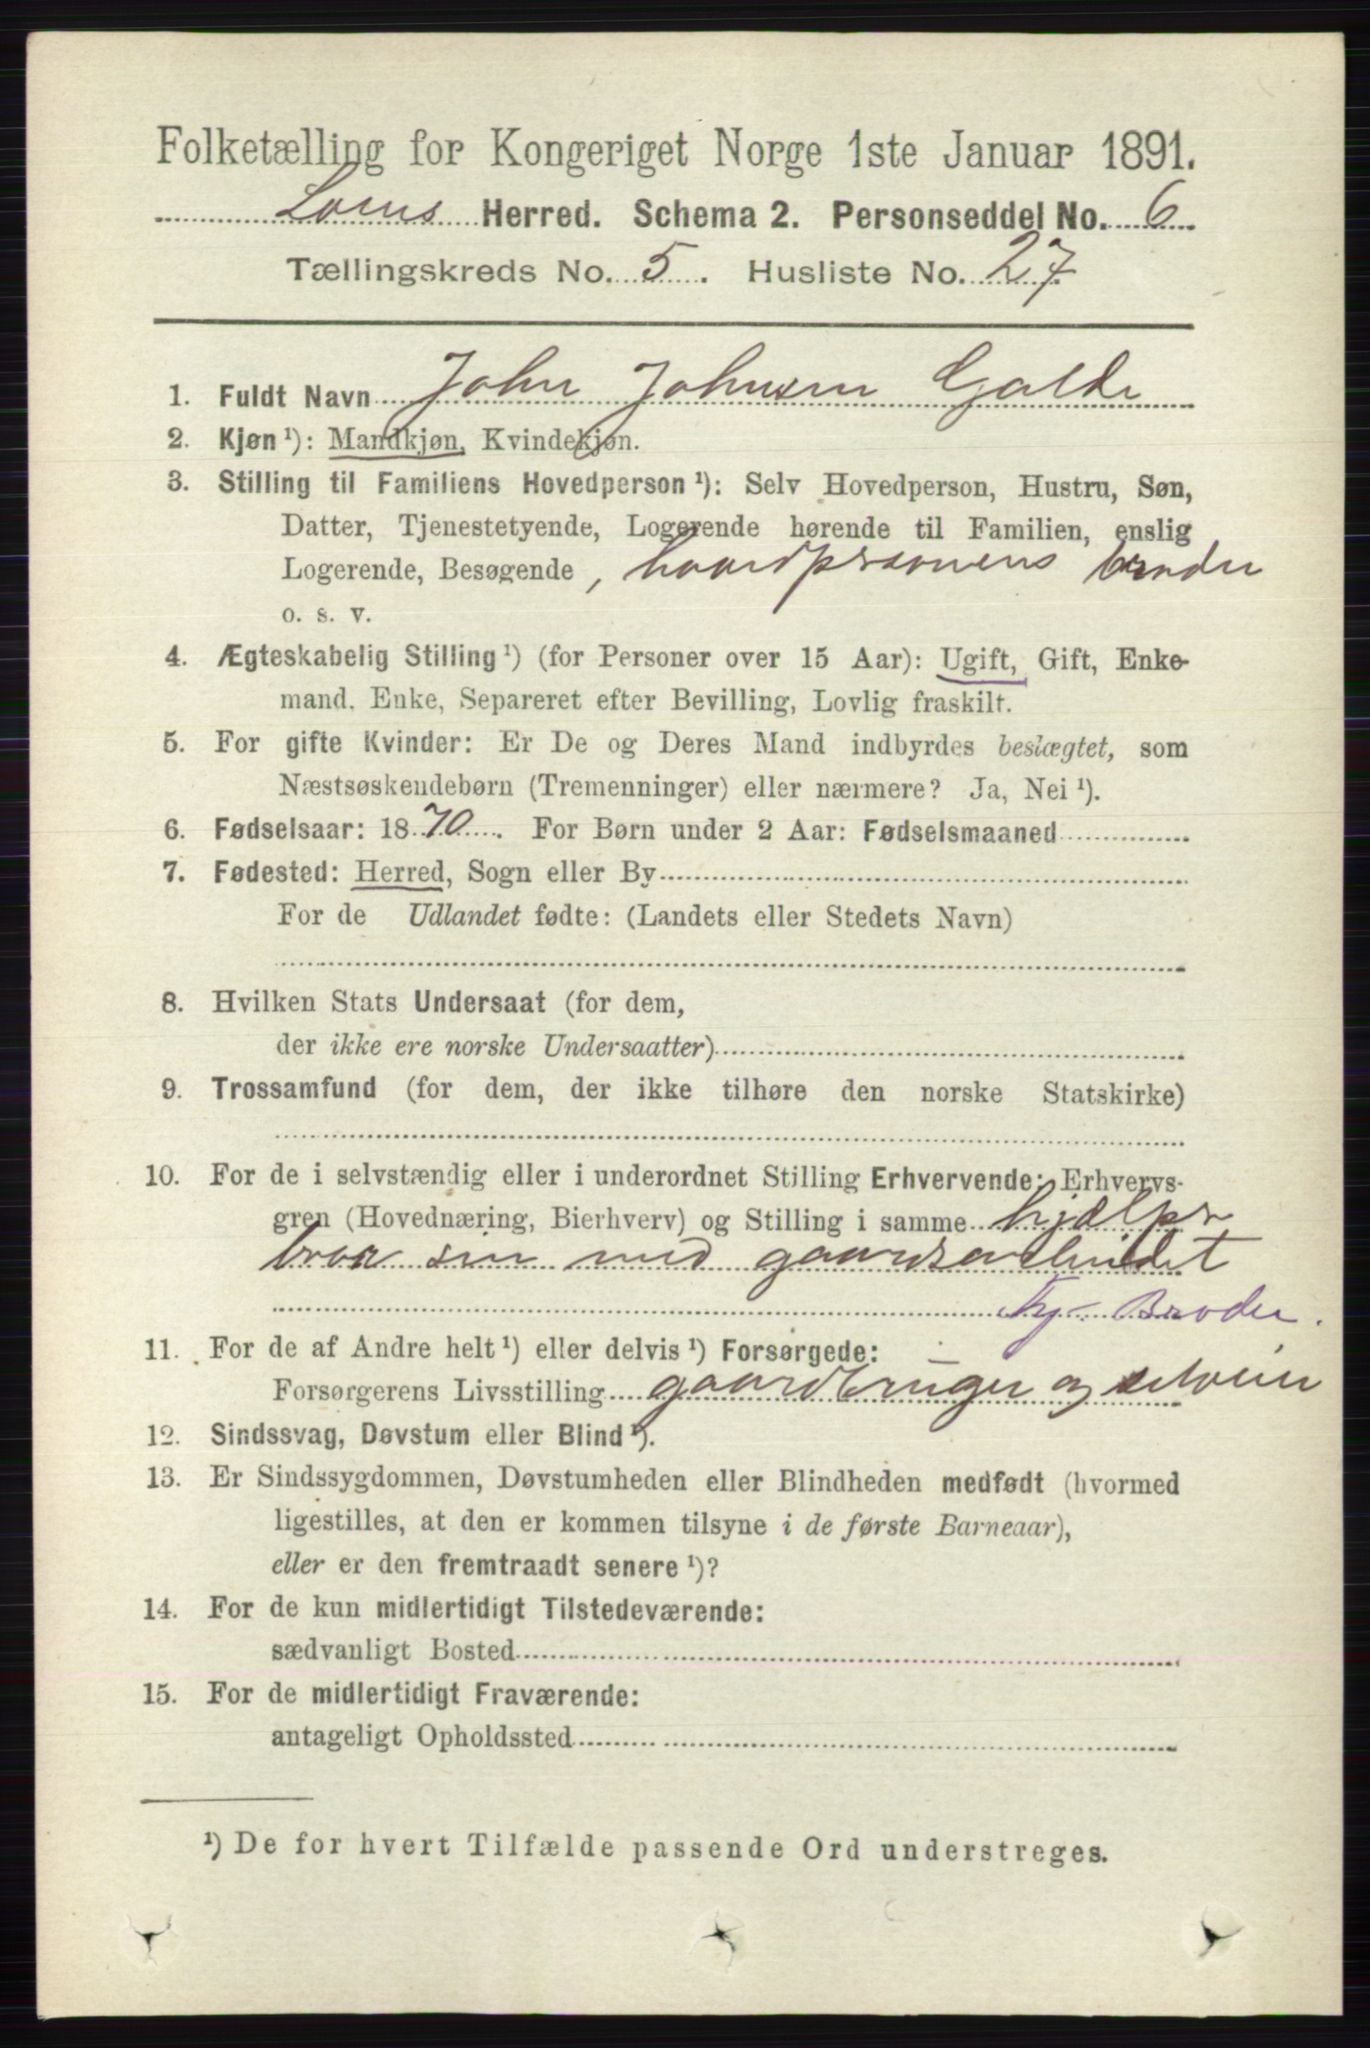 Folketælling for Kongeriget Norge 1ste Januar 1891.
Loms Herred. Schema 2. Personseddel No. 6
Tællingskreds No. 5. Husliste No. 27
1. Fuldt Navn John Johnsen Galde
2. Kjøn¹): Mandkjøn, Kvindekjøn.
3. Stilling til Familiens Hovedperson¹): Selv Hovedperson, Hustru, Søn,
Datter, Tjenestetyende, Logerende hørende til Familien, enslig
Logerende, Besøgende, hovedpersonens broder
o. s. v.
4. Ægteskabelig Stilling¹) (for Personer over 15 Aar): Ugift, Gift, Enke-
mand, Enke, Separeret efter Bevilling, Lovlig fraskilt.
5. For gifte Kvinder: Er De og Deres Mand indbyrdes beslægtet, som
Næstsøskendebørn (Tremenninger) eller nærmere? Ja, Nei¹).
6. Fødselsaar: 1870. For Børn under 2 Aar: Fødselsmaaned
7. Fødested: Herred, Sogn eller By
For de Udlandet fødte: (Landets eller Stedets Navn)
8. Hvilken Stats Undersaat (for dem,
der ikke ere norske Undersaatter)
9. Trossamfund (for dem, der ikke tilhøre den norske Statskirke)
10. For de i selvstændig eller i underordnet Stilling Erhvervende: Erhvervs-
gren (Hovednæring, Bierhverv) og Stilling i samme hjælper
bror sin med gaardsarbeidet
Tj. Broder.
11. For de af Andre helt¹) eller delvis¹) Forsørgede:
Forsørgerens Livsstilling gaardbruger og selveier
12. Sindssvag, Døvstum eller Blind¹).
13. Er Sindssygdommen, Døvstumheden eller Blindheden medfødt (hvormed
ligestilles, at den er kommen tilsyne i de første Barneaar),
eller er den fremtraadt senere¹)?
14. For de kun midlertidigt Tilstedeværende:
sædvanligt Bosted
15. For de midlertidigt Fraværende:
antageligt Opholdssted
¹) De for hvert Tilfælde passende Ord understreges.